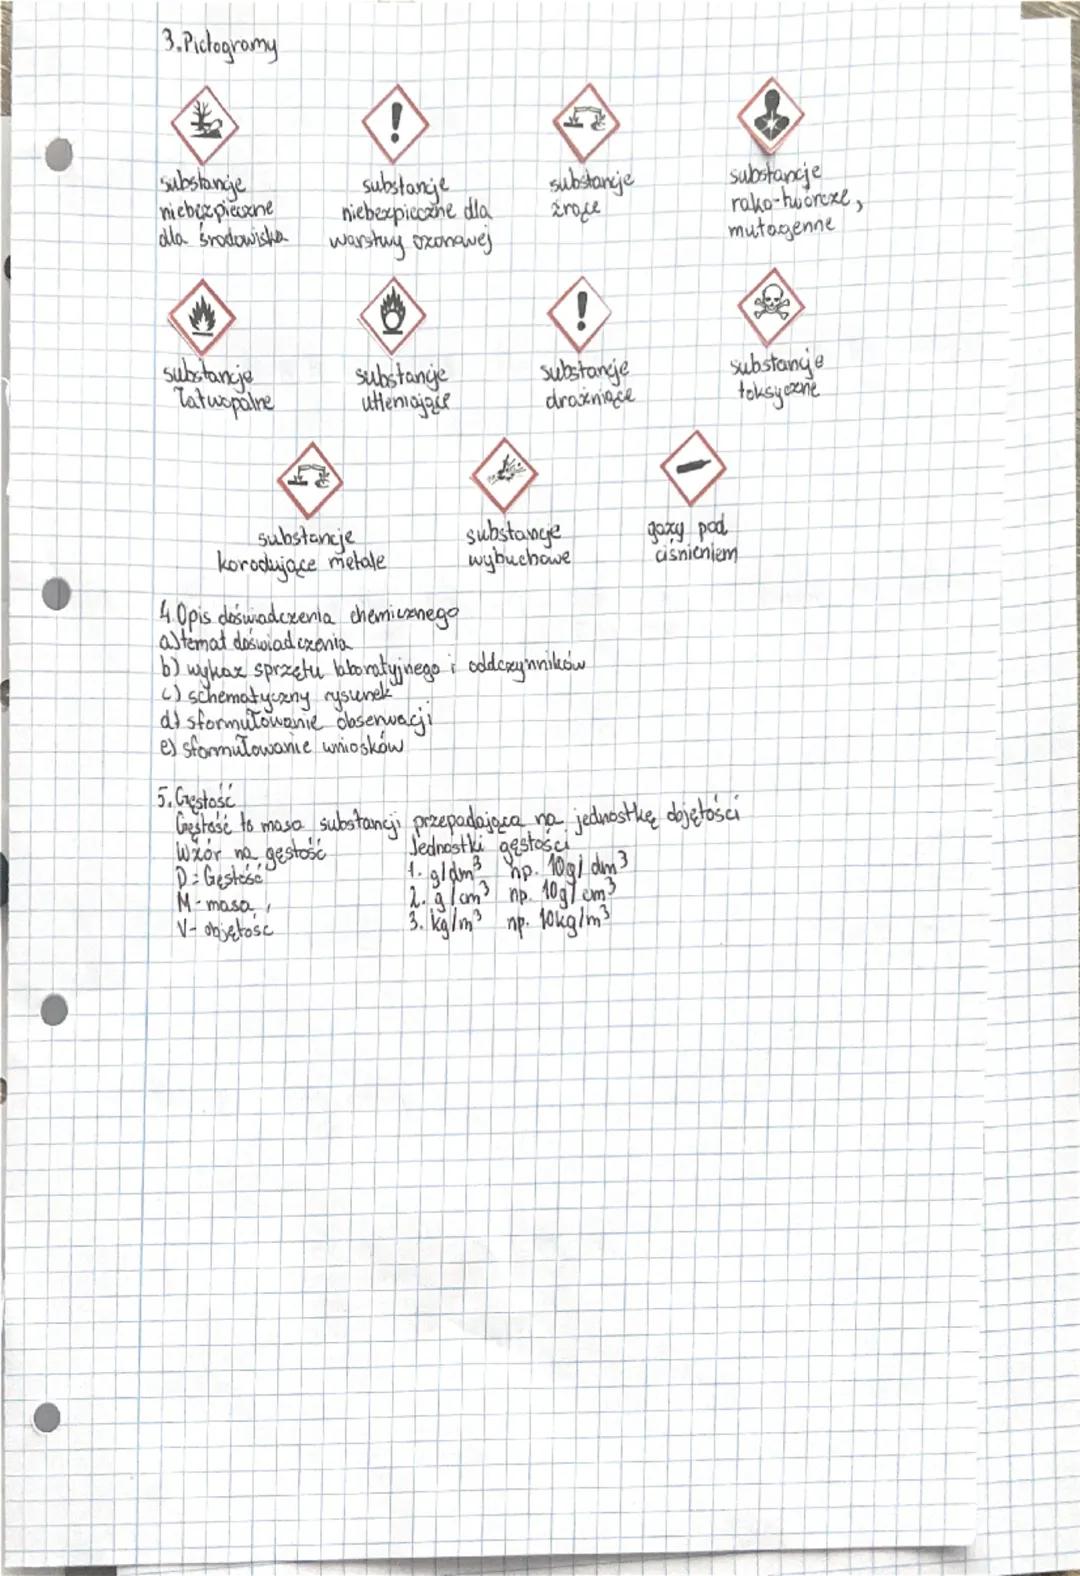 3. Pictogramy
substancje niebezpieczne dla środowiska
substancje niebezpieczne dla warstwy ozonowej
substancje żrące
substancje rako-twórcze, mutagenne
substancje łatwopalne
substancje utleniające
substancje drażniące
substancje toksyczne
substancje korodujące metale
substancje wybuchowe
gazy pod ciśnieniem
4. Opis doświadczenia chemicznego
a) temat doświadczenia
b) wykaz sprzętu laboratyjnego i oddczynników
c) schematyczny rysunek
d) sformułowanie obserwacji
e) sformułowanie wniosków
5. Gęstość
Gęstość to masa substancji przepadająca na jednostkę dojętości
Wzór na gęstość
D = Gęstość
M - masa
V - objętość
Jednostki gęstości
1. g/dm³ np. 10g/dm³
2. g/cm³ np. 10g/cm³
3. kg/m³ np. 10kg/m³